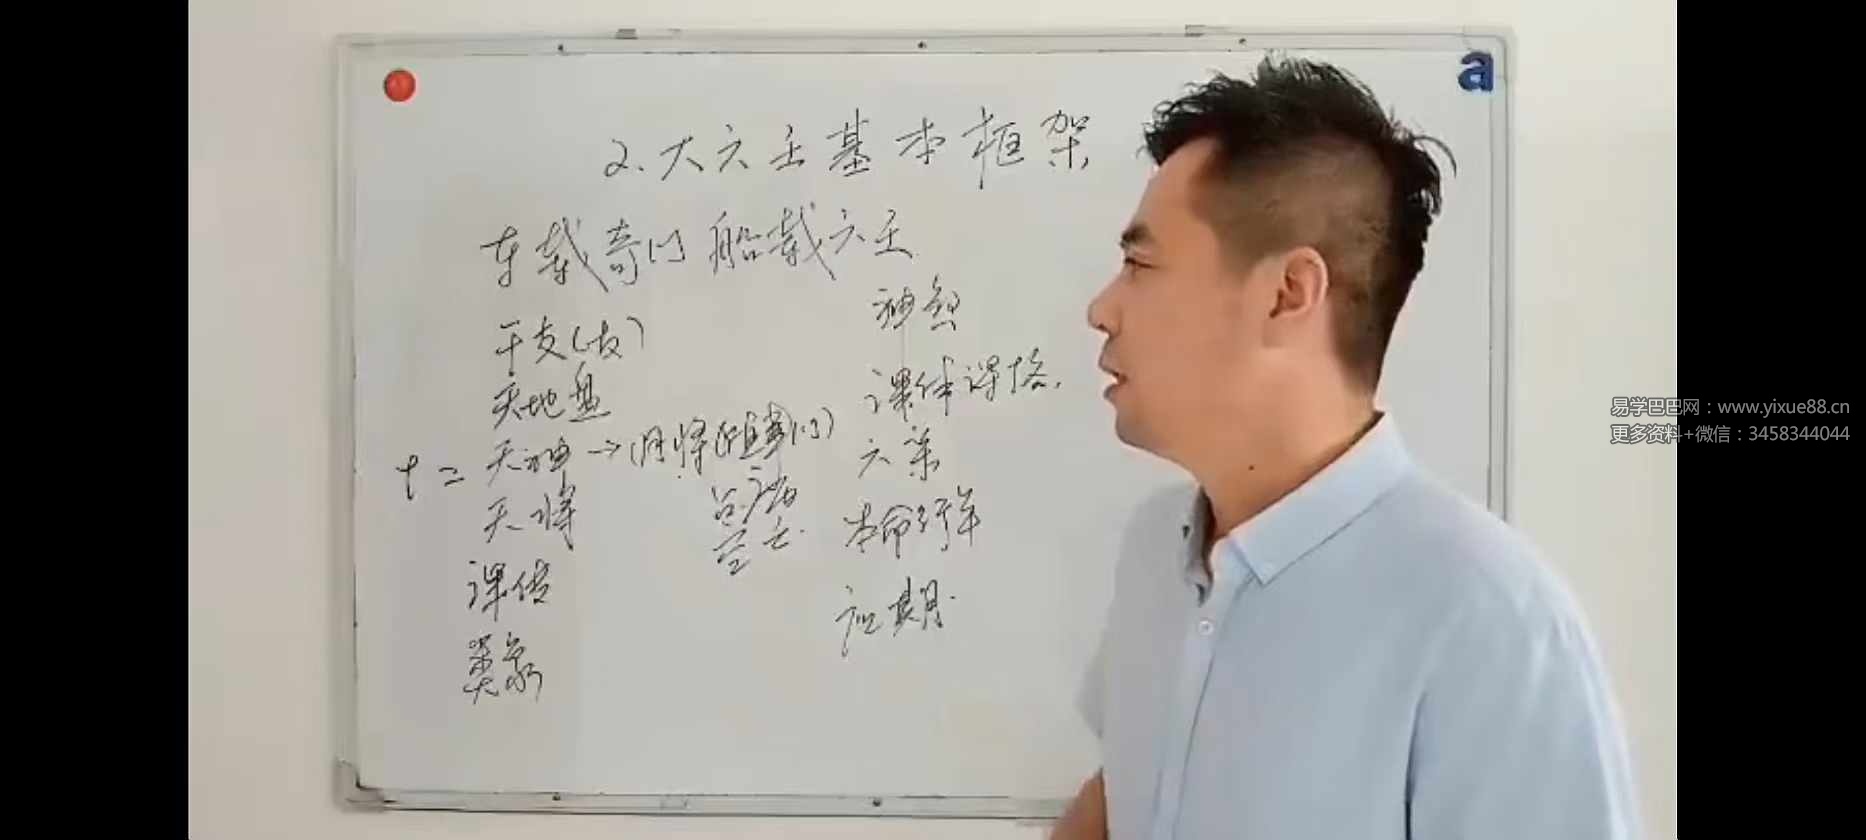 a
2.大六壬基本框架
车载奇门 船载六壬
干支(古)
天地盘
十二 天神→(月将
天将
课传
类象
空亡.
神煞
课体课格.
六亲
本命行年
应期.
易学巴巴网：www.yixue88.cn
更多资料+微信：3458344044